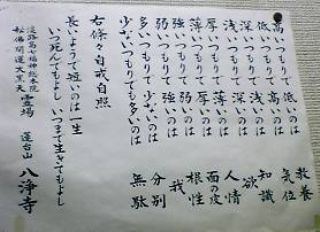 高いつもりで 低いのは 教養
低いつもりで 高いのは 気位
深いつもりで 浅いのは 知識
浅いつもりで 深いのは 欲
厚いつもりで 薄いのは 人情
薄いつもりで 厚いのは 面の皮
強いつもりで 弱いのは 根性
弱いつもりで 強いのは 我
多いつもりで 少ないのは 分別
少ないつもりで 多いのは 無駄
右條々自戒自照
長いようで短いのは一生
いつ死んでもよし いつまで生きてもよし
淡路島七福神総本院
開運大黒天 霊場 蓮台山 八浄寺